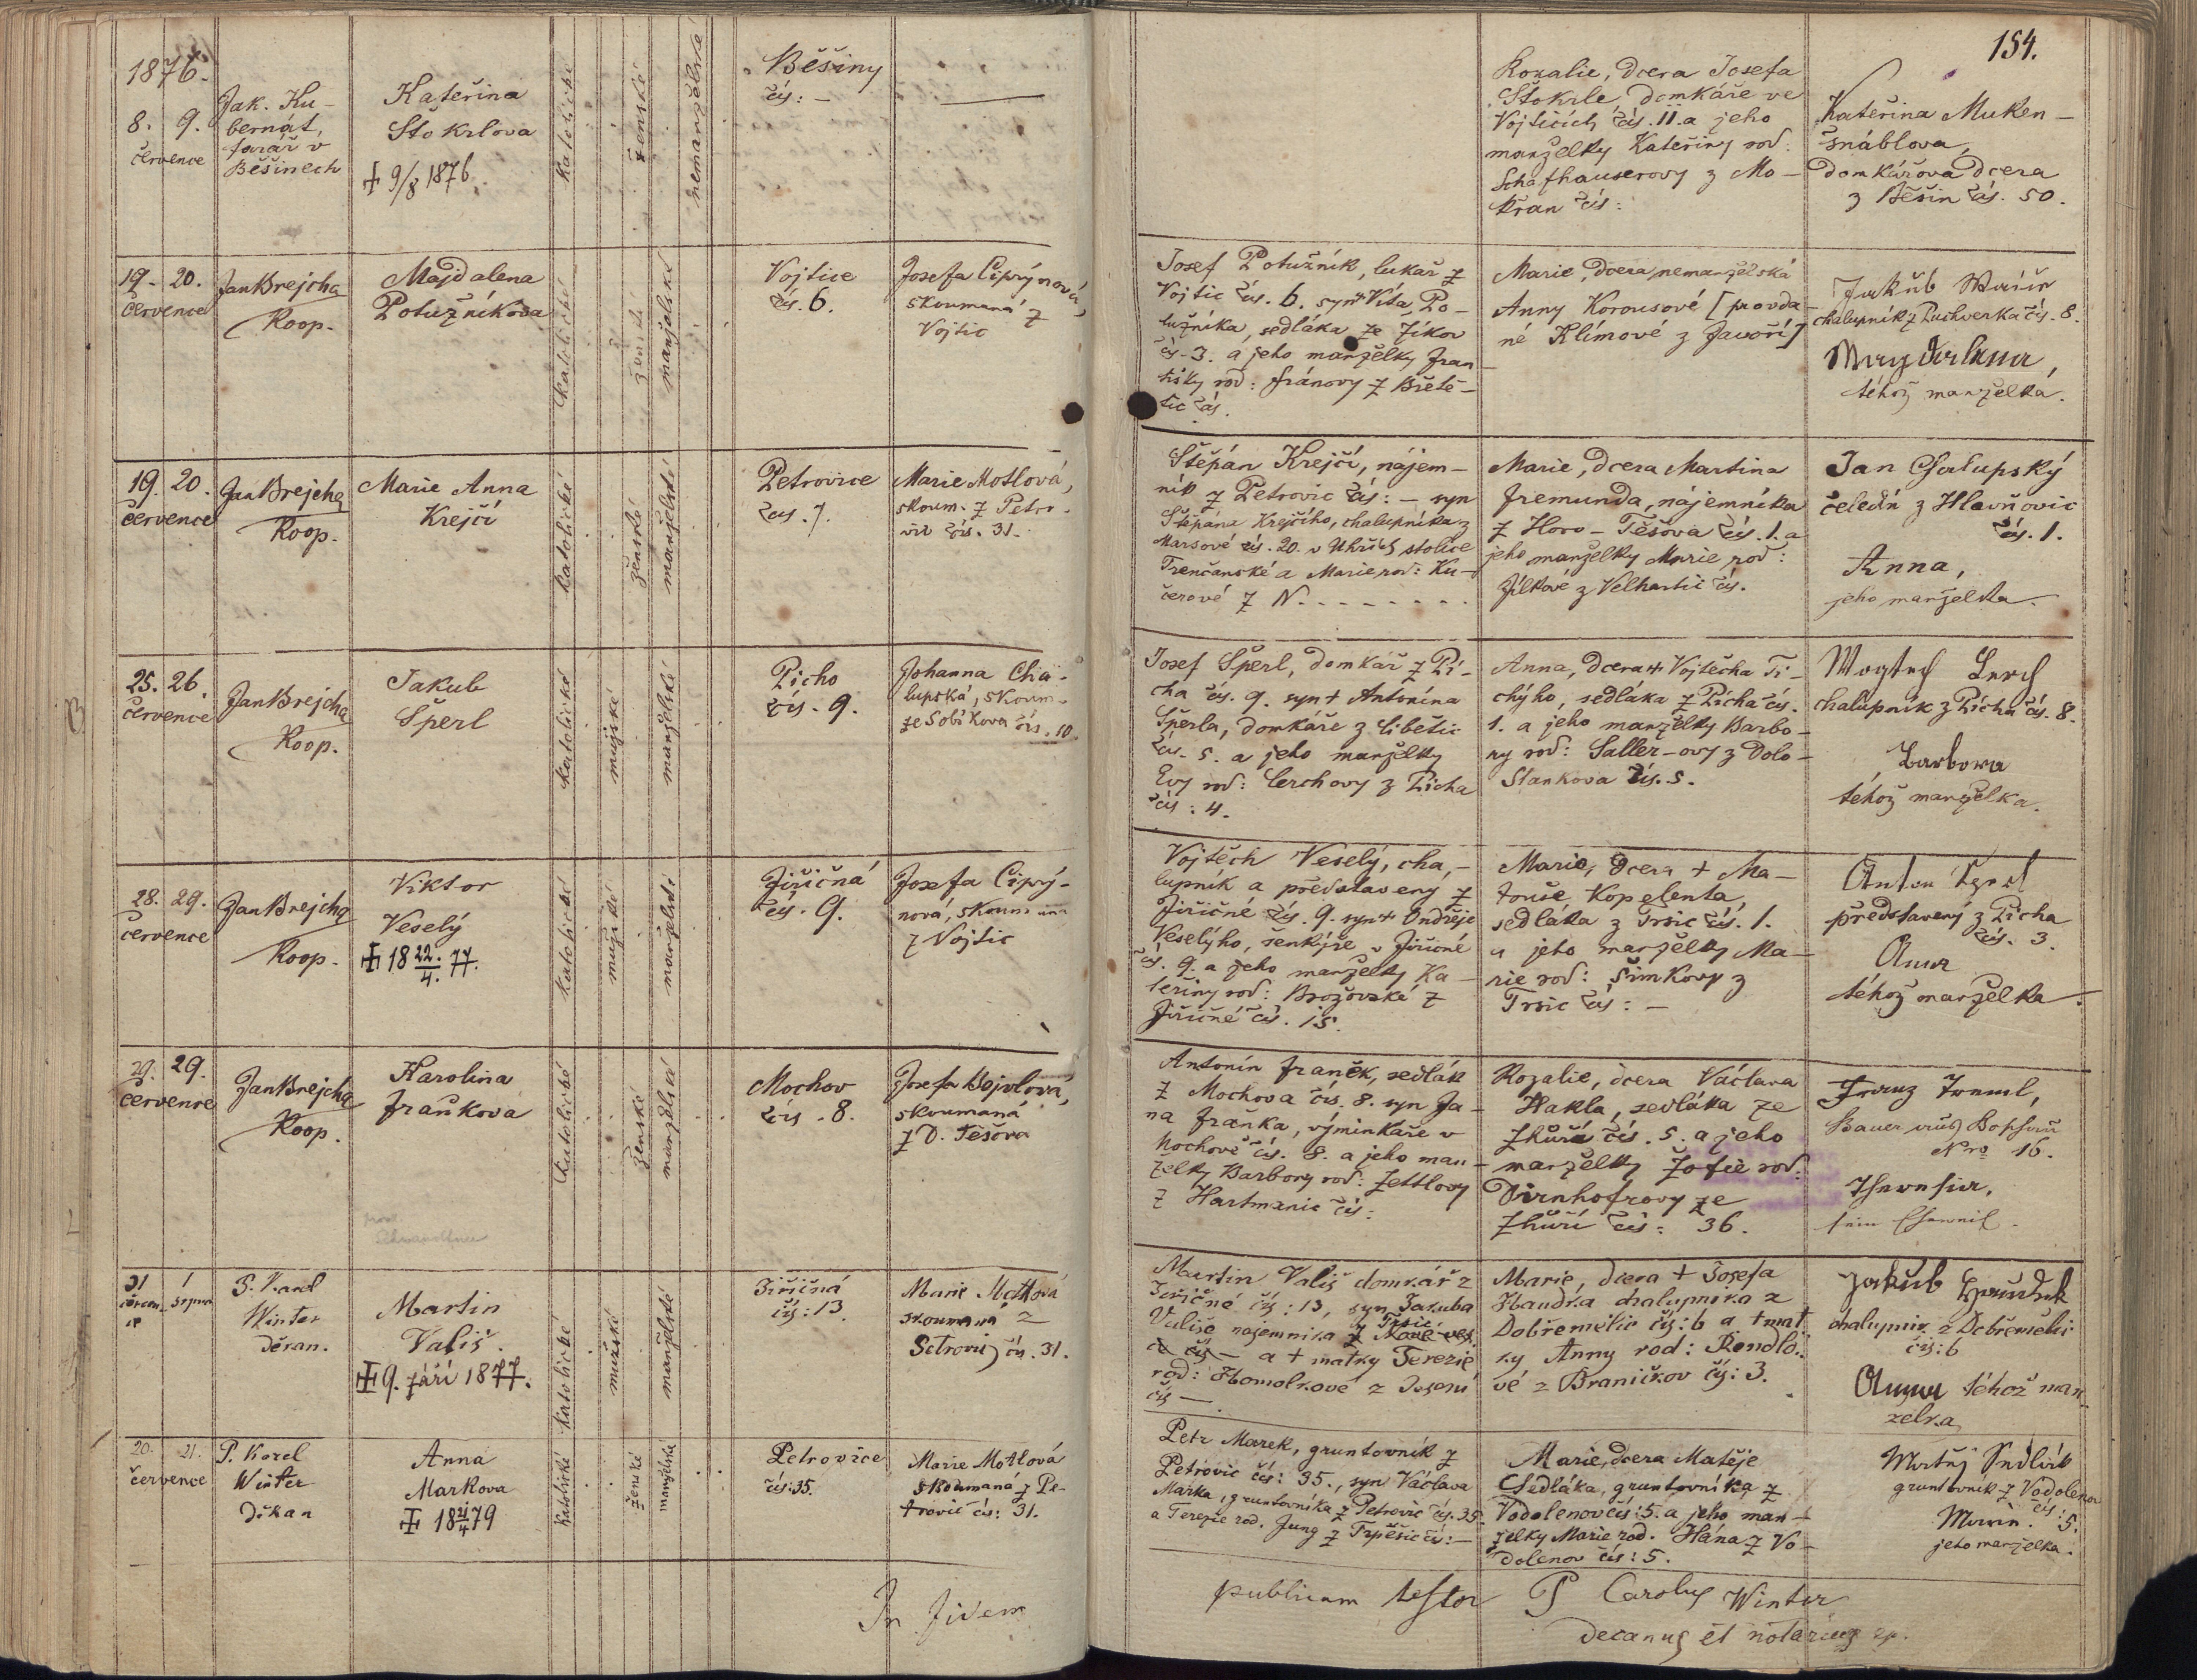 154.
1876.
8. 9.
července
Jak. Ku-
bernát,
farář v
Běšinech
Kateřina
Štokrlova
+ 9/8 1876.
katolické
ženské
nemanželské
Běšiny
čís: –
Rozalie, dcera Josefa
Štokrle, domkáře ve
Vojticích čís. 11. a jeho
manželky Kateřiny rod:
Schafhauserovy z Mo-
křan čís:
Kateřina Muken-
šnáblova,
domkářova dcera
z Běšin čís. 50.
19. 20.
července
Jan Brejcha
Koop.
Majdalena
Potužníkova
katolické
ženské
manželské
Vojtice
čís. 6.
Josefa Ciprýnová,
skoumaná z
Vojtic
Josef Potužník, lukař z
Vojtic čís. 6. syn + Víta Po-
tužníka, sedláka ze
čís. 3. a jeho manželky Fran-
tišky rod: Fránovy z Břetě-
tic čís.
Marie, dcera nemanželská
Anny Korousové [provda-
né Klímové z Javoří]
Jakub
chalupník z Puchverka čís. 8.
Magdalena,
téhož manželka.
19. 20.
července
Jan Brejcha
Koop.
Marie Anna
Krejčí
katolické
ženské
manželské
Petrovice
čís. 7.
Marie Motlová,
skoum. z Petro-
vic čís. 31.
Štěpán Krejčí, nájem-
ník z Petrovic čís: – syn
Štěpána Krejčího, chalupníka z
Marsové čís. 20. v Uhřích stolice
Trenčanské a Marie rod: Ku-
čerové z N. - - - - - - -
Marie, dcera Martina
Fremunda, nájemníka
z Horo-Těšova čís. 1. a
jeho manželky Marie rod:
Jílkové z Velhartic čís.
Jan Chalupský
čeledín z Hlavňovic
čís. 1.
Anna,
jeho manželka.
25. 26.
července
Jan Brejcha
Koop.
Jakub
Šperl
katolické
mužské
manželské
Pícho
čís. 9.
Johanna Cha-
lupská, skoum.
ze Sobíkova čís. 10.
Josef Šperl, domkář z Pí-
cha čís. 9. syn + Antonína
Šperla, domkáře z Libětic
čís. 5. a jeho manželky
Evy rod: Lerchovy z Picha
čís: 4.
Anna, dcera + Vojtěcha Ti-
chýho, sedláka z Pícha čís.
1. a jeho manželky Barbo-
ry rod: Saller-ovy z Dolo-
Stankova čís. 5.
Wogtech Lerch
chalupník z Pícha čís. 8.
Barbora
téhož manželka.
28. 29.
července
Jan Brejcha
Koop.
Viktor
Veselý
+ 18 22./4. 77.
katolické
mužské
manželské
Jiřičná
čís. 9.
Josefa Ciprý-
nová, skoumaná
z Vojtic
Vojtěch Veselý, cha-
lupník a představený z
Jiřičné čís. 9. syn + Ondřeje
Veselýho, šenkýře v Jiřičné
čís. 9. a jeho manželky Ka-
teřiny rod: Brožovské z
Jiřičné čís. 15.
Marie, dcera + Ma-
touše Kopelenta,
sedláka z Trsic čís. 1.
a jeho manželky Ma-
rie rod: Šimkovy z
Trsic čís: –
Anton
představený z Pícha
čís. 3.
Anna
téhož manželka.
29. 29.
července
Jan Brejcha
Koop.
Karolina
Fraňkova
katolické
ženské
manželské
Mochov
čís. 8.
Josefa Bojvlová,
skoumaná
z D. Těšova
Antonín Franěk, sedlák
z Mochova čís. 8. syn Ja-
na Fraňka, výminkáře v
Mochově čís. 8. a jeho man-
želky Barbory rod: Zettlovy
z Hartmanic čís:
Rozalie, dcera Václava
Hakla, sedláka ze
Zhůří čís. 5. a jeho
manželky Žofie rod:
Dirnhofrovy ze
Zhůří čís: 36.
Franz Treml,
Bauer
Nro 16.
Theresia,
sein Eheweib.
31 1
červen- srpna
ce
P. Karel
Winter
děkan.
Martin
Vališ.
+ 9. září 1877.
katolické
mužské
manželské
Jiřičná
čís: 13.
Marie Motlová
skoumaná z
Petrovic čís. 31.
Martin Vališ domkář z
Jiřičné čís: 13, syn Jakuba
Vališe nájemníka z Trsic
Nové vsi
čís – a + matky Terezie
rod: Homolkové z
čís –
Marie, dcera + Josefa
Haudka chalupníka z
Dobřemělic čís: 6 a + mat-
ky Anny rod: Rendlo-
vé z Braničkov čís: 3.
Jakub
chalupník z Dobřemělic
čís: 6
Anna téhož man-
želka
20. 21.
července
P. Karel
Winter
Děkan
Anna
Markova
+ 18 21/4 79
katolické
ženské
manželské
Petrovice
čís: 35.
Marie Motlová
skoumaná z Pe-
trovic čís: 31.
Petr Marek, gruntovník z
Petrovic čís: 35., syn Václava
Marka, gruntovníka z Petrovic čís. 35.
a Terezie rod. Jung z Trpěšic čís: –
Marie, dcera Matěje
Sedláka, gruntovníka z
Vodolenov čís: 5. a jeho man-
želky Marie rod. Hána z Vo-
dolenov čís: 5.
Matěj Sedlák
gruntovník z Vodolenov
čís: 5.
Marie
jeho manželka.
In fidem
publicam testor P Carolus Winter
decanus et notarius